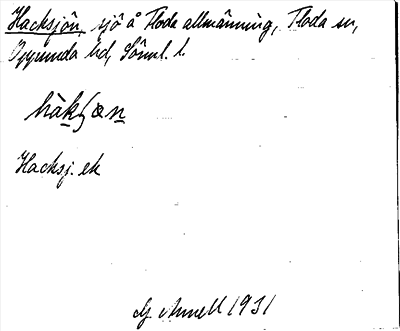 Hacksjön, sjö å Floda allmänning, Floda sn,
Oppunda hd, Söml. l.
hàkʃœn
Hacksj. ek
G. Annell 1931